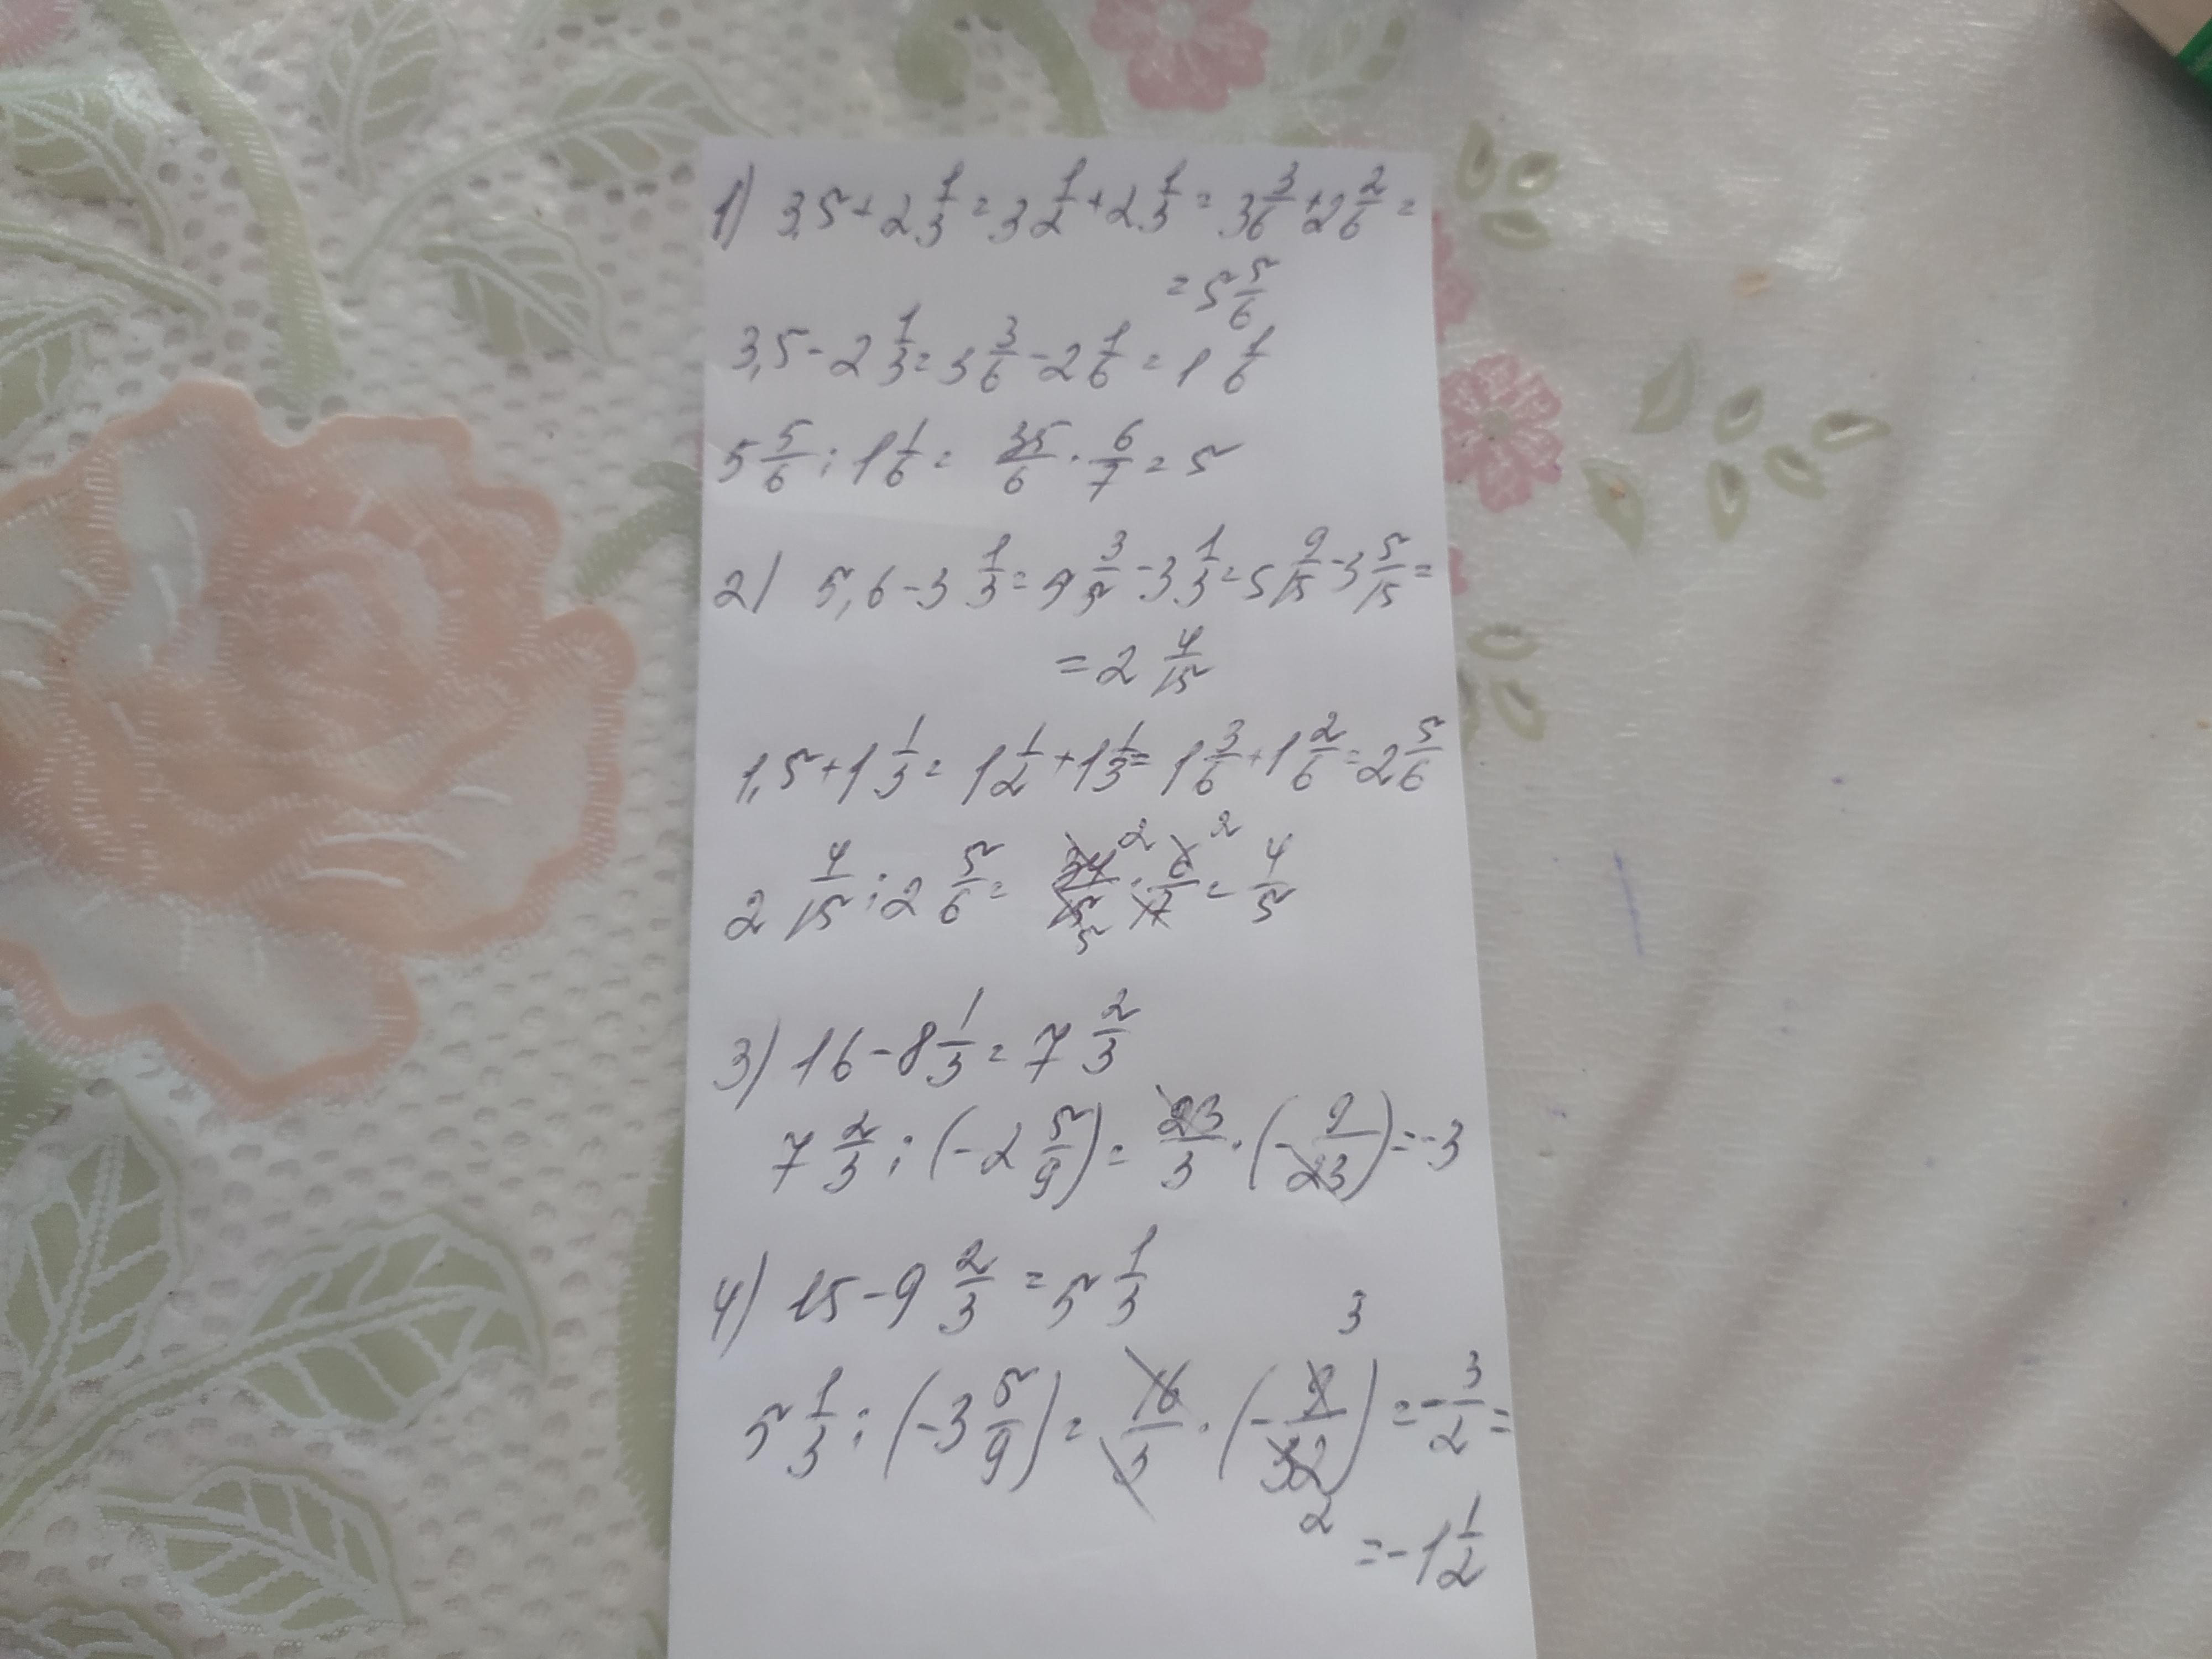 1) 3,5+2 1/3=3 1/2+2 1/3=3 3/6+2 2/6=
=5 5/6
3,5-2 1/3=3 3/6-2 1/6=1 1/6
5 5/6:1 1/6=35/6·6/7=5
2) 5,6-3 1/3=5 3/5-3 1/3=5 9/15-3 5/15=
=2 4/15
1,5+1 1/3=1 1/2+1 1/3=1 3/6+1 2/6=2 5/6
2 4/15:2 5/6=34/15·6/17=4/5
2 2
5
3) 16-8 1/3=7 2/3
7 2/3:(-2 5/9)=23/3·(-9/23)=-3
4) 15-9 2/3=5 1/3
3
5 1/3:(-3 5/9)=16/3·(-9/32)=-3/2=
2
=-1 1/2